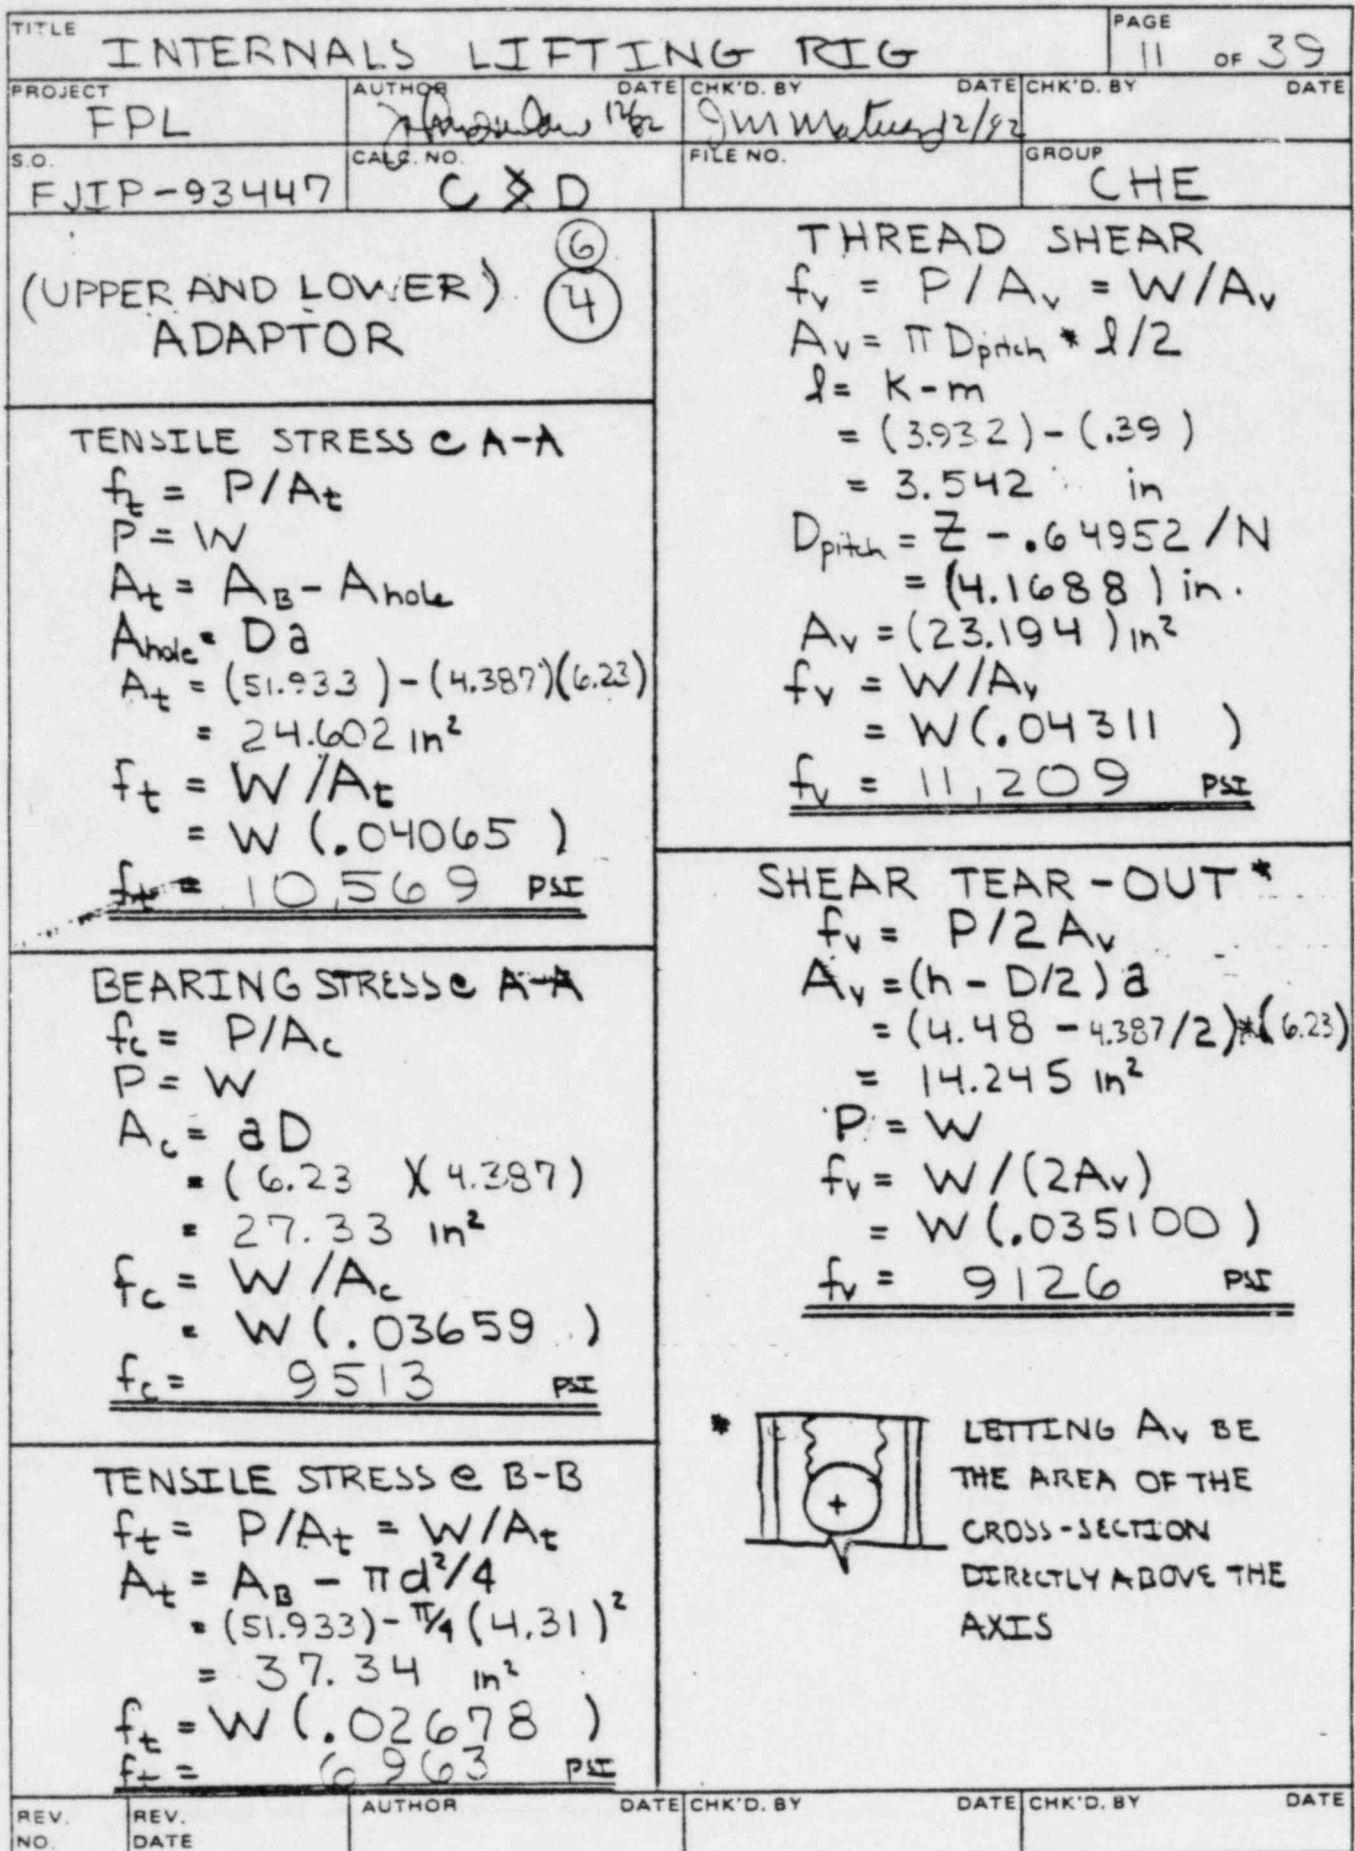 TITLE
INTERNALS LIFTING RIG
PAGE
11 OF 39
PROJECT
FPL
AUTHOR DATE
12/82
CHK'D. BY DATE
12/82
CHK'D. BY DATE
S.O.
FJIP-93447
CALC. NO.
C & D
FILE NO.
GROUP
CHE
(UPPER AND LOWER)
ADAPTOR
6
4
TENSILE STRESS @ A-A
ft = P/At
P = W
At = AB - Ahole
Ahole = Da
At = (51.933) - (4.387)(6.23)
= 24.602 in²
ft = W/At
= W (.04065)
ft = 10,569 PSI
BEARING STRESS @ A-A
fc = P/Ac
P = W
Ac = aD
= (6.23)(4.387)
= 27.33 in²
fc = W/Ac
= W (.03659)
fc = 9513 PSI
TENSILE STRESS @ B-B
ft = P/At = W/At
At = AB - πd²/4
= (51.933) - π/4 (4.31)²
= 37.34 in²
ft = W (.02678)
ft = 6963 PSI
THREAD SHEAR
fv = P/Av = W/Av
Av = π Dpitch * l/2
l = K-m
= (3.932) - (.39)
= 3.542 in
Dpitch = Z - .64952/N
= (4.1688) in.
Av = (23.194) in²
fv = W/Av
= W(.04311)
fv = 11,209 PSI
SHEAR TEAR-OUT *
fv = P/2Av
Av = (h - D/2) a
= (4.48 - 4.387/2)*(6.23)
= 14.245 in²
P = W
fv = W/(2Av)
= W(.035100)
fv = 9126 PSI
* LETTING Av BE
THE AREA OF THE
CROSS-SECTION
DIRECTLY ABOVE THE
AXIS
REV. NO.
REV. DATE
AUTHOR DATE
CHK'D. BY DATE
CHK'D. BY DATE